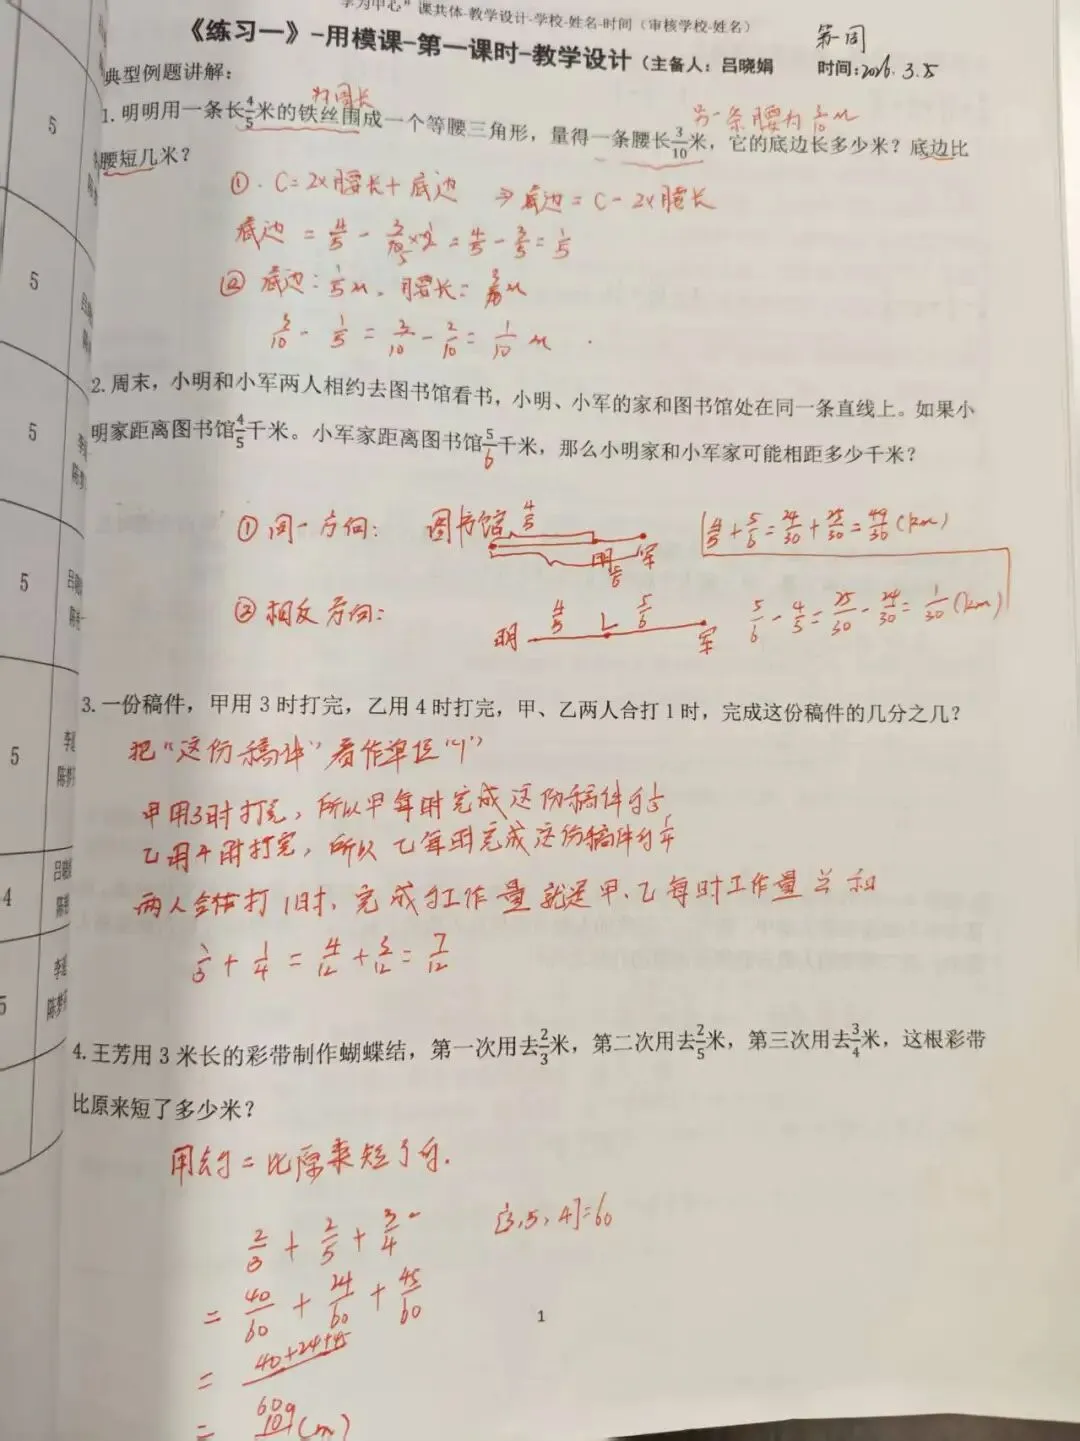 学为中心”课共体-教学设计-学校-姓名-时间（审核学校-姓名）
《练习一》-用模课-第一课时-教学设计（主备人：吕晓娟
第一周
时间:2026.3.5
典型例题讲解：
为周长
另一条腰为3/10 m
1.明明用一条长4/5米的铁丝围成一个等腰三角形，量得一条腰长3/10米，它的底边长多少米？底边比
腰短几米？
①. C=2×腰长+底边 ⇒底边=C-2×腰长
底边=4/5-3/10×2=4/5-3/5=1/5
② 底边:1/5m. 腰长:3/10m
3/10-1/5=3/10-2/10=1/10 m
2.周末，小明和小军两人相约去图书馆看书，小明、小军的家和图书馆处在同一条直线上。如果小
明家距离图书馆4/5千米。小军家距离图书馆5/6千米，那么小明家和小军家可能相距多少千米？
① 同一方向: 图书馆 4/5 明 5/6 军 4/5+5/6=24/30+25/30=49/30(km)
② 相反方向: 明 4/5 5/6 军 5/6-4/5=25/30-24/30=1/30(km)
3.一份稿件，甲用3时打完，乙用4时打完，甲、乙两人合打1时，完成这份稿件的几分之几？
把“这份稿件”看作单位“1”
甲用3时打完，所以甲每时完成这份稿件的1/3
乙用4时打完，所以乙每时完成这份稿件的1/4
两人合打1时，完成的工作量就是甲、乙每时工作量之和
1/3+1/4=4/12+3/12=7/12
4.王芳用3米长的彩带制作蝴蝶结，第一次用去2/3米，第二次用去2/5米，第三次用去3/4米，这根彩带
比原来短了多少米？
用去的=比原来短了的.
2/3+2/5+3/4 [3,5,4]=60
=40/60+24/60+45/60
=40+24+45/60
=109(m)
1
5
5
5
5
5
4
5